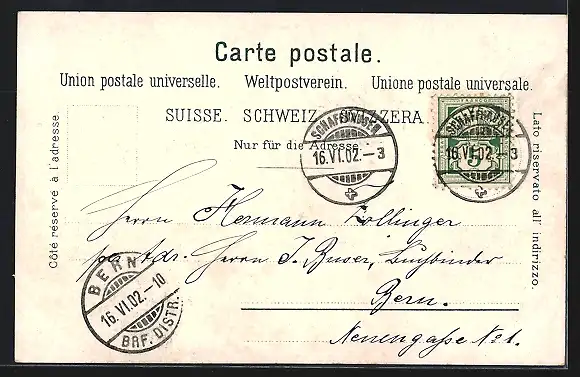 Carte postale.
Union postale universelle. Weltpostverein. Unione postale universale.
SUISSE. SCHWEIZ. ZZERA.
Nur für die Adresse.
Côté réservé à l'adresse.
Lato riservato all' indirizzo.
SCHAFFHAUSEN
16.VI.02.–3
SCHAFFHAUSEN
16.VI.02.–3
5
Herrn Hermann Zollinger
pr. Adr. Herrn J. Buser, Buchbinder
Bern.
Neuengasse No 1.
BERN
16.VI.02.–10
BRF. DISTR.